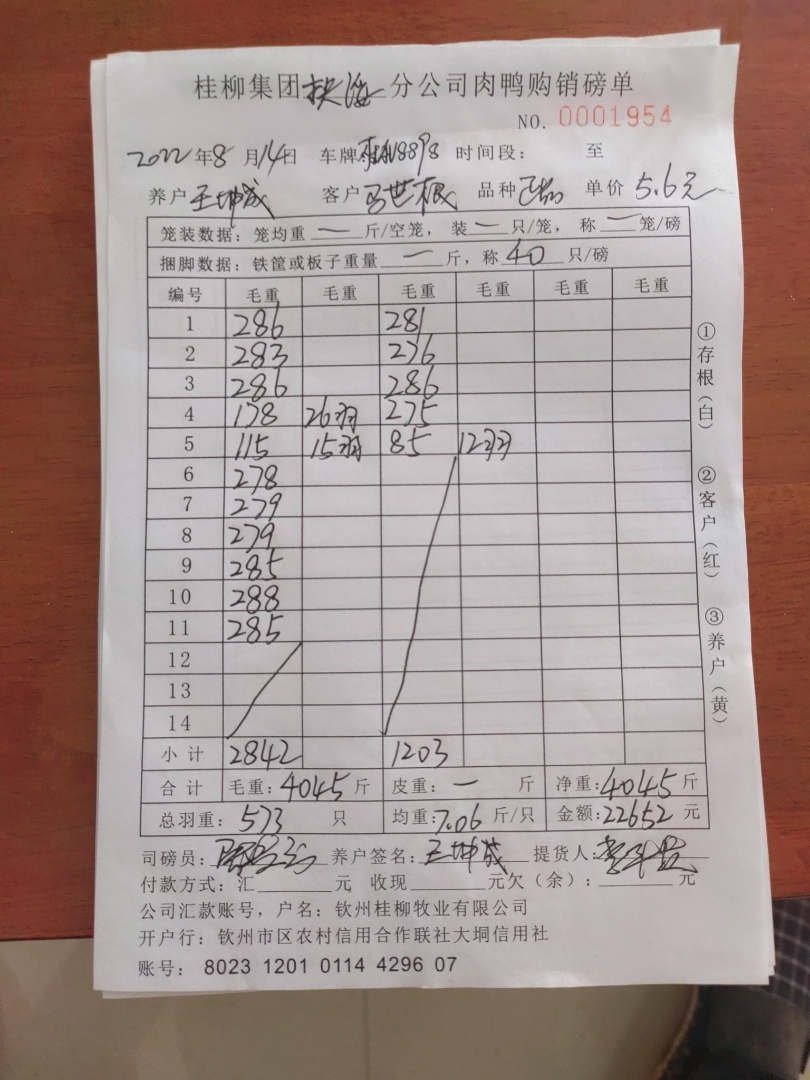 桂柳集团扶海分公司肉鸭购销磅单
NO. 0001954
2022年8月14日 车牌 8898 时间段: 至
养户王坤成 客户马世根 品种正品 单价5.6元
笼装数据:笼均重一斤/空笼,装一只/笼,称一笼/磅
捆脚数据:铁筐或板子重量一斤,称40只/磅
编号 毛重 毛重 毛重 毛重 毛重 毛重
1 286 281
2 283 276
3 286 286
4 178 26羽 275
5 115 15羽 85 12羽
6 278
7 279
8 279
9 285
10 288
11 285
12
13
14
小计 2842 1203
合计 毛重:4045斤 皮重:一斤 净重:4045斤
总羽重:573只 均重:7.06斤/只 金额:22652元
司磅员: 养户签名:王坤成 提货人:
付款方式:汇元 收现元欠(余):元
公司汇款账号,户名:钦州桂柳牧业有限公司
开户行:钦州市区农村信用合作联社大垌信用社
账号: 8023 1201 0114 4296 07
①存根(白)
②客户(红)
③养户(黄)